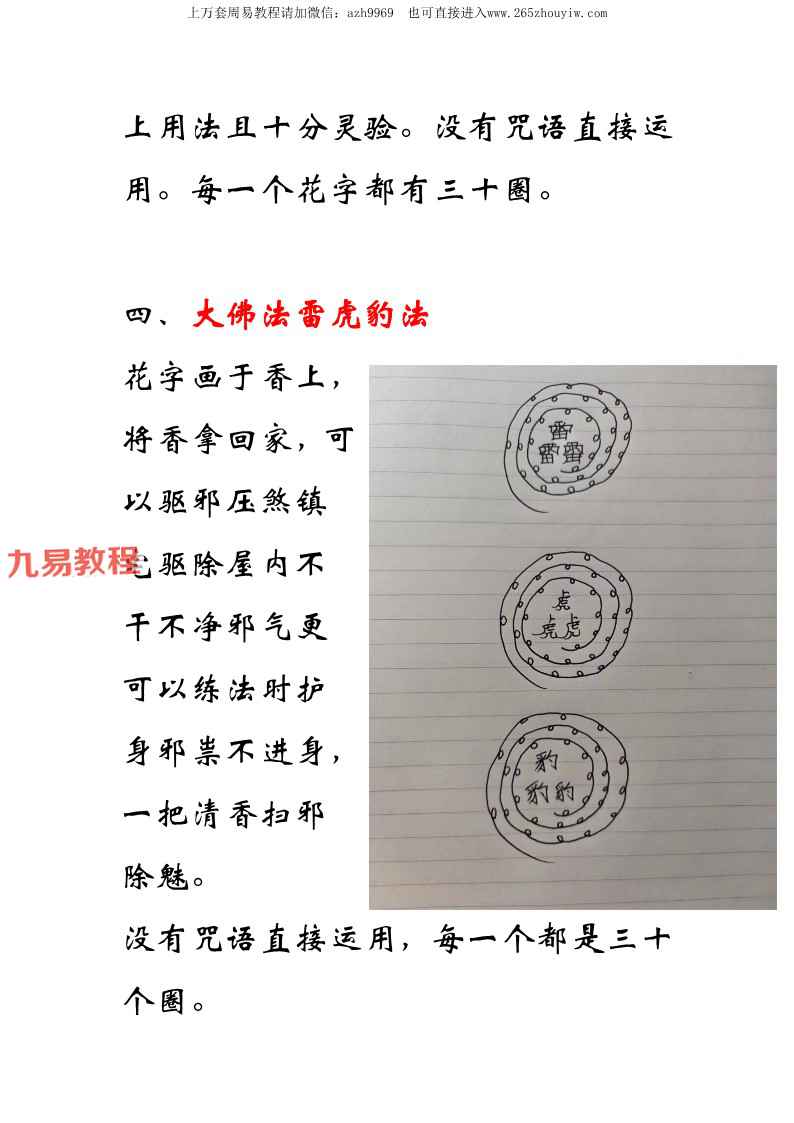 上万套周易教程请加微信：azh9969 也可直接进入www.265zhouyiw.com
上用法且十分灵验。没有咒语直接运
用。每一个花字都有三十圈。
四、大佛法雷虎豹法
花字画于香上，
将香拿回家，可
以驱邪压煞镇
驱除屋内不
干不净邪气更
可以练法时护
身邪祟不进身，
一把清香扫邪
除魅。
没有咒语直接运用，每一个都是三十
个圈。
九易教程
雷
雷雷
虎
虎虎
豹
豹豹